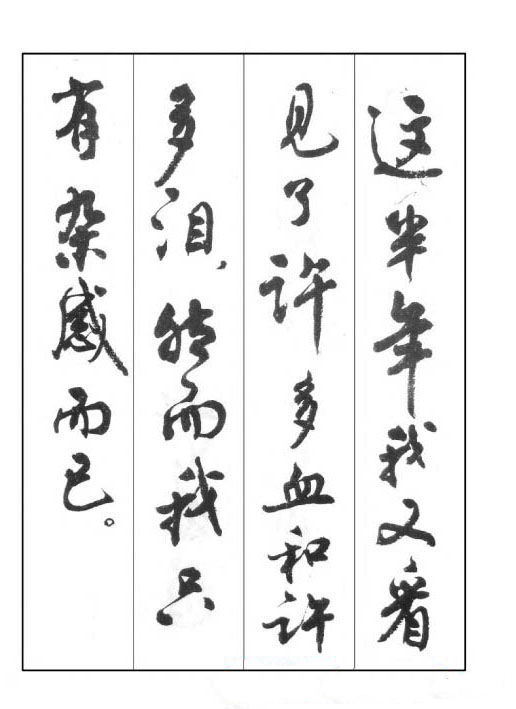 这半年我又看
见了许多血和许
多泪，然而我只
有杂感而已。